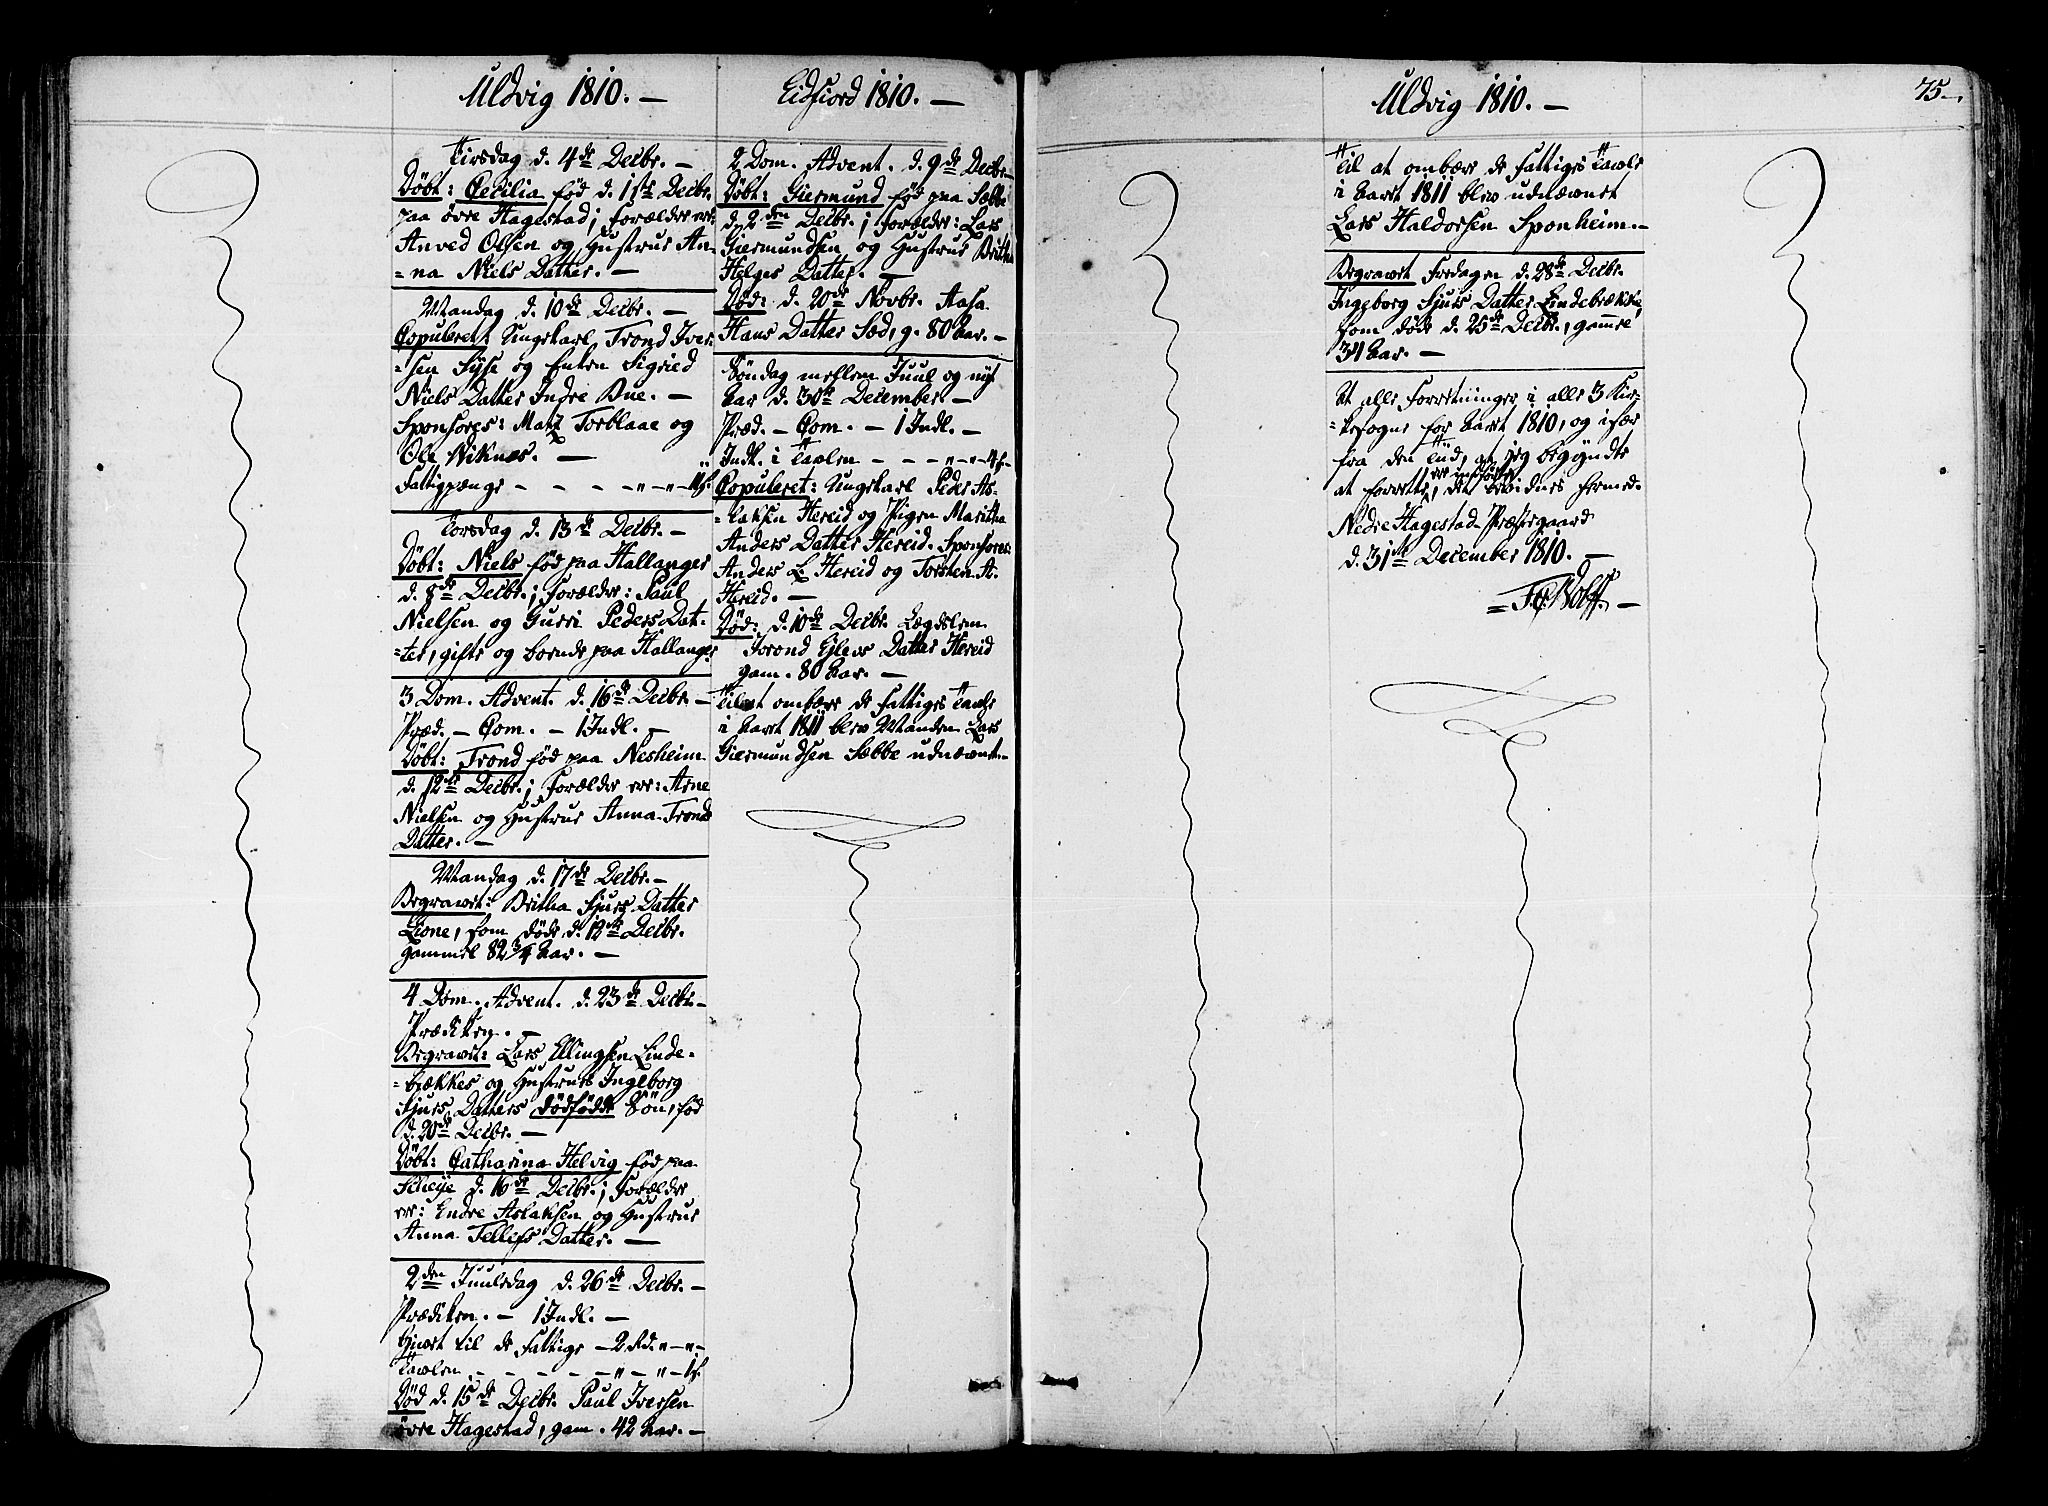 Uldvig 1810. —
Tirsdag d. 4de Decbr. —
Döbt: Cecilia föd d. 1ste Decbr.
paa övre Hagestad; Forældre ere:
Anved Olsen og Hustrue An-
=na Niels Datter. —
Mandag d. 10de Decbr. —
Copuleret: Ungkarl Trond Iver-
=sen Syse og Enken Sigried
Niels Datter Indre Bue. —
Sponsores: Matz Torblaae og
Ole Wiknes. —
Fattigpænge - - - - „ - „ -
Torsdag d. 13de Decbr. —
Döbt: Niels föd paa Hallanger
d. 8de Decbr.; Forældre: Paul
Nielsen og Gurri Peders Dat-
=ter, gifte og boende paa Hallanger
3 Dom. Advent. d. 16de Decbr. —
Præd. — Com. — 1 Indl. —
Döbt: Trond föd paa Nesheim
d. 12te Decbr.; Forældre ere: Arne
Nielsen og Hustrue Anna Tronds
Datter. —
Mandag d. 17de Decbr. —
Begravet: Britha Sjurs Datter
Lione, som döde d. 12te Decbr.
gammel 82 3/4 Aar. —
4 Dom. Advent. d. 23de Decbr. —
Prædiken. —
Begravet: Lars Ellingsen Linde-
=brækkes og Hustrues Ingeborg
Sjurs Datters dödfödde Sön, föd
d. 20de Decbr. —
Döbt: Catharina Helvig föd paa
d. 16de Decbr.; Forældre
ere: Endre Aslaksen og Hustrue
Anna Tellefs Datter. —
2den Juulsdag d. 26de Decbr. —
Prædiken. — 1 Indl. —
Givet til de Fattige — 2 Rd. „ — „ —
Tavlen - - - - - „ - „ - 1 s.
Död d. 15de Decbr. Paul Iversen
övre Hagestad, gam. 42 Aar. —
Eidfiord 1810. —
2 Dom. Advent. d. 9de Decbr. —
Döbt: Giermund föd paa Sæbbe
d. 2den Decbr.; Forældre: Lars
Giermundsen og Hustrue Britha
Helges Datter. —
Död: d. 20de Novbr. Aasa
Hans Datter Sæd, g. 80 Aar. —
Söndag mellem Juul og nyt
Aar d. 30te December —
Præd. — Com. — 1 Indl. —
Indk. i Tavlen - - - „ - „ - 4 s. -
Copuleret: Ungkarl Peder As-
=laksen Hereid og Pigen Maritha
Anders Datter Hereid. Sponsores:
Anders L. Hereid og Torsten A.
Hereid. —
Död: d. 10de Decbr. Lægdslem
Jorond Ejlevs Datter Hereid
gam. 80 Aar. —
Til at ombære de Fattiges Tavle
i Aaret 1811 blev Manden Lars
Giermundsen Sæbbe udnævnt. —
Uldvig 1810. —
75.
Til at ombære de Fattiges Tavle
i Aaret 1811 blev udnævnt
Lars Haldorsen Sponheim. —
Begravet Fredagen d. 28de Decbr.
Ingeborg Sjurs Datter Lindebrække,
som döde d. 25de Decbr., gamle
34 Aar. —
At alle Forretninger i alle 3 Kir-
=kesogne for Aaret 1810, og især
fra den Tiid, at jeg begyndte
at forrette, ere indförte, det bevidnes herved.
Nedre Hagestad Præsegaard
d. 31te December 1810. —
= F. C. Wolff. —